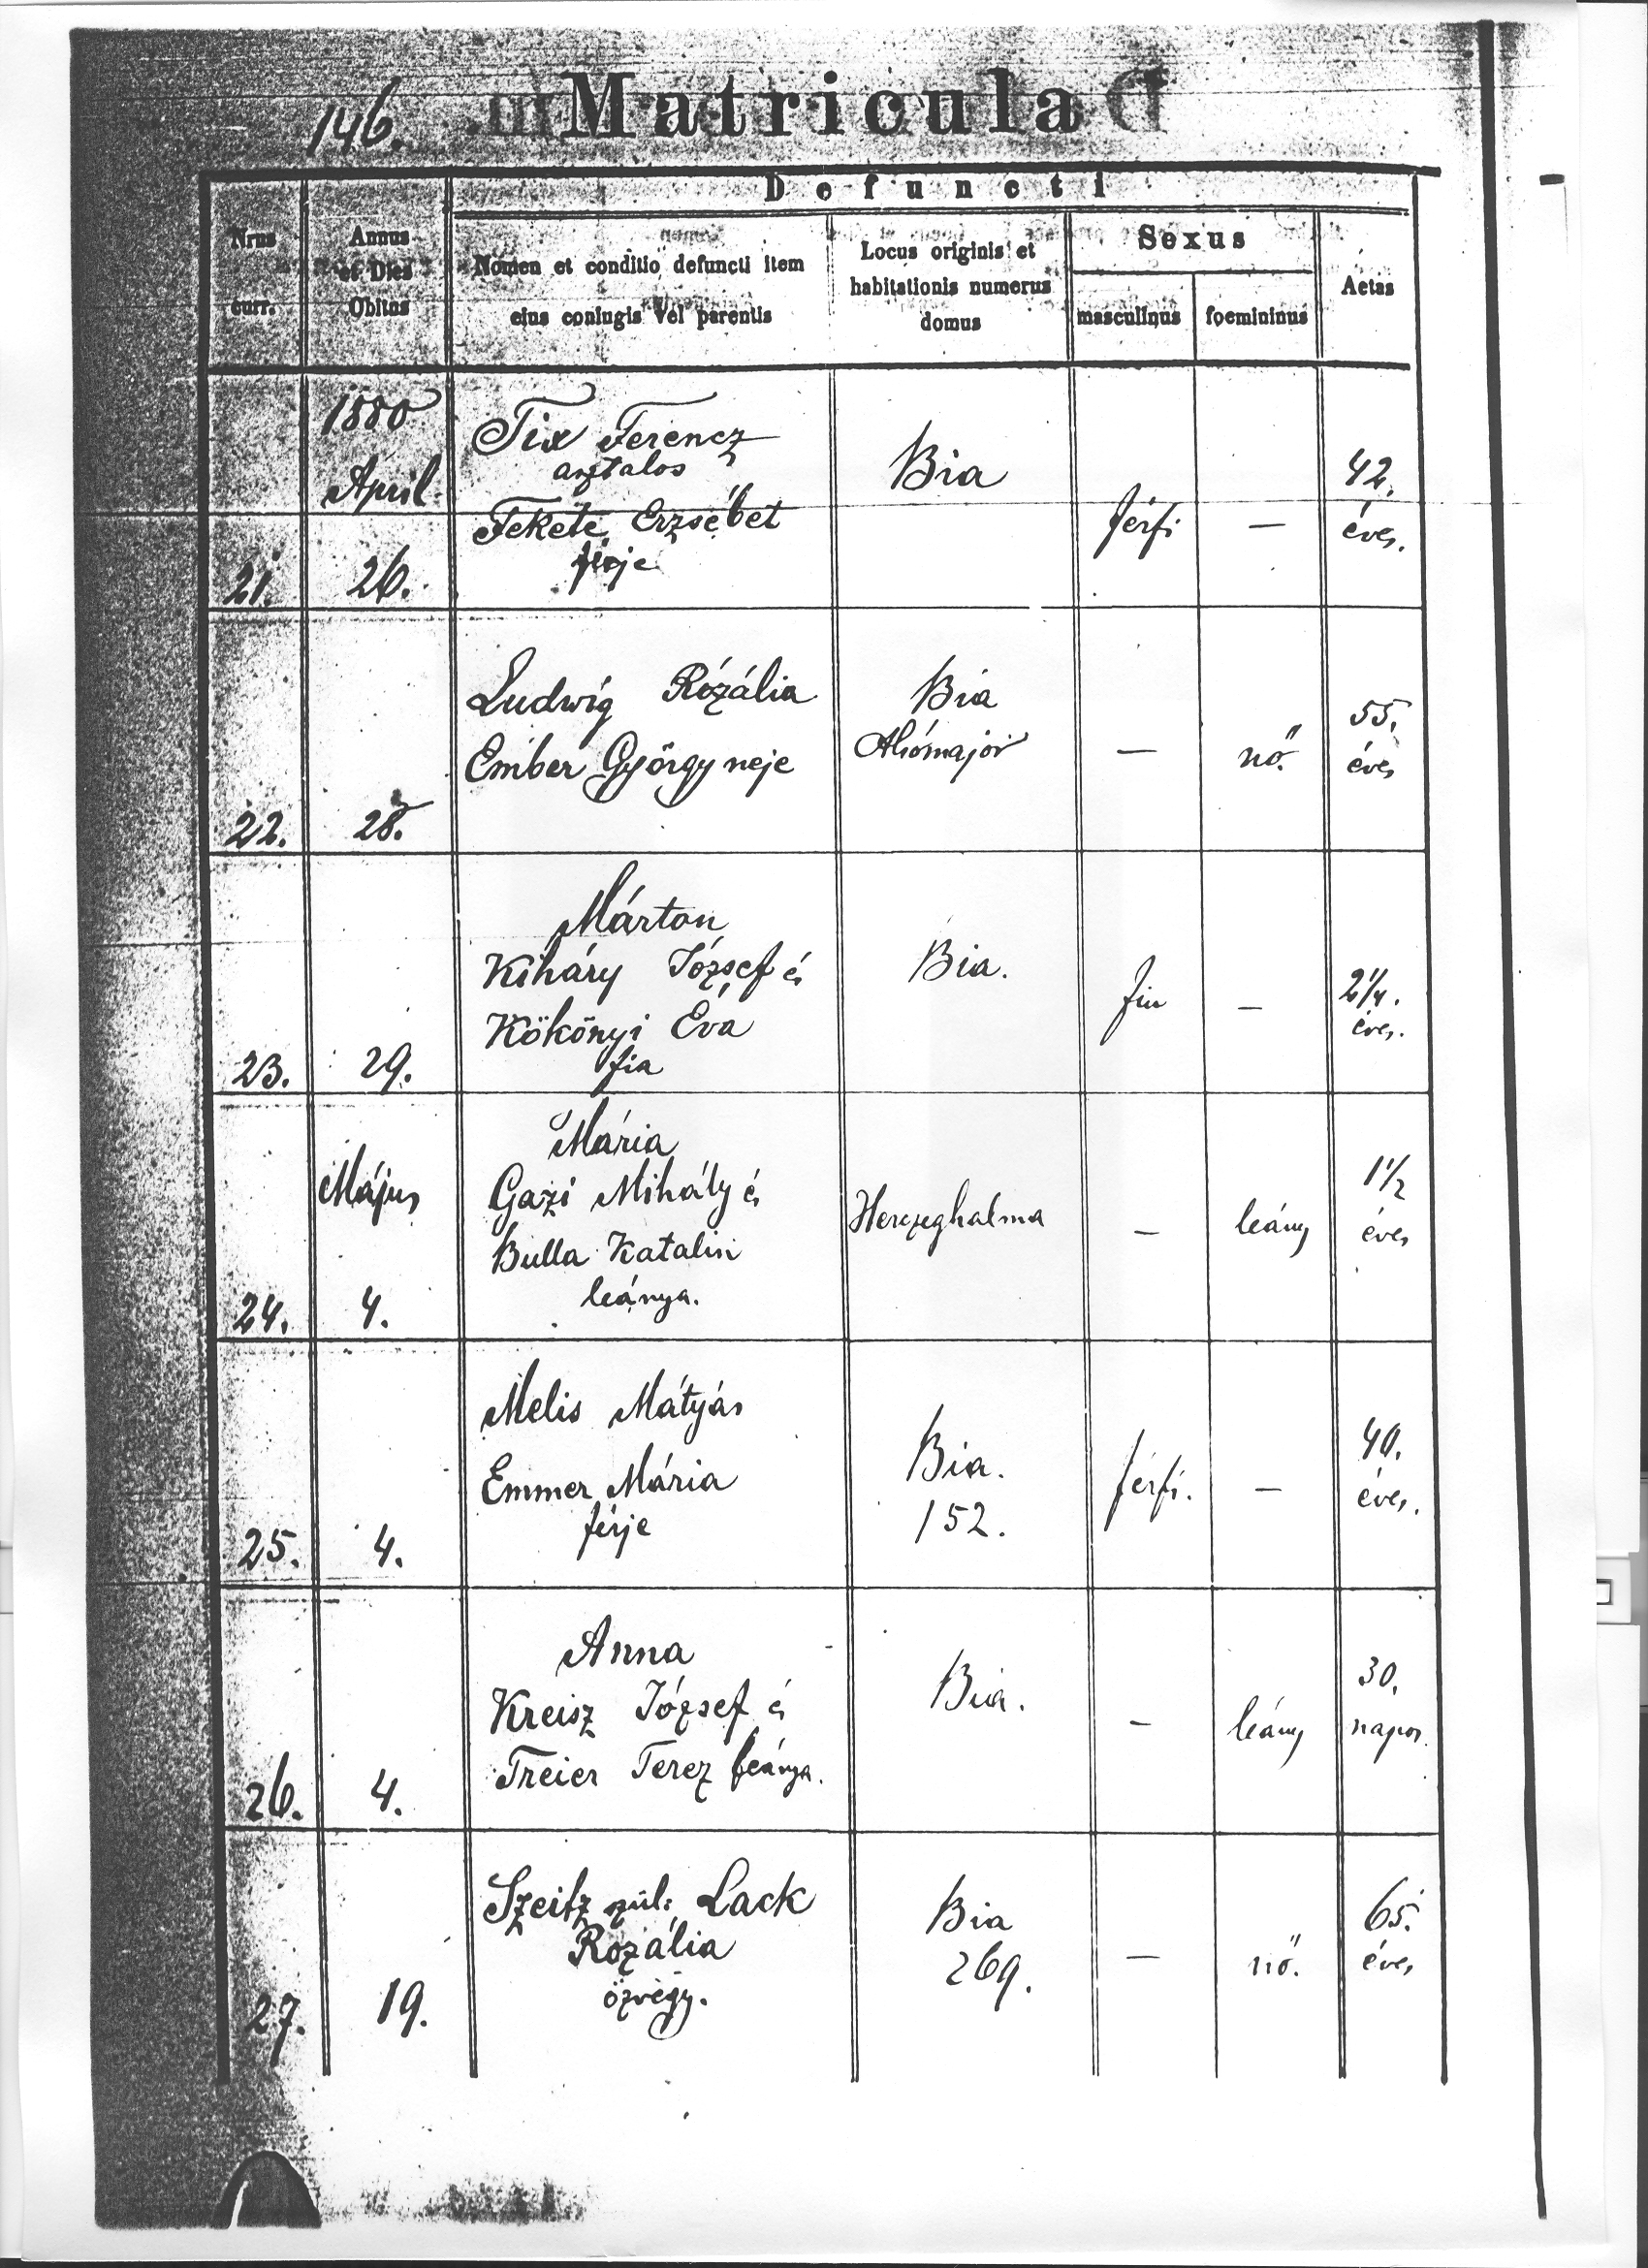 146. Matricula
Defuncti
Nrus
curr.
Annus
et Dies
Obitus
Nomen et conditio defuncti item
eius coniugis vel parentis
Locus originis et
habitationis numerus
domus
Sexus
masculinus
foemininus
Aetas
1880
April
21.
26.
Tix Ferencz
asztalos
Fekete Erzsébet
férje
Bia
férfi
—
42.
éves.
22.
28.
Ludwig Rózália
Ember György neje
Bia
Alsómajor
—
nő.
55.
éves
23.
29.
Márton
Kiháry József és
Kökönyi Éva
fia
Bia.
fiu
—
2 1/4.
éves.
Május
24.
4.
Mária
Gazi Mihály és
Bulla Katalin
leánya.
Herczeghalma
—
leány
1 1/2
éves
25.
4.
Melis Mátyás
Emmer Mária
férje
Bia.
152.
férfi.
—
40.
éves.
26.
4.
Anna
Kreisz József és
Treier Terez leánya.
Bia.
—
leány
30.
napos.
27.
19.
Szeitz szül: Lack
Rozália
özvegy.
Bia
269.
—
nő.
65.
éves